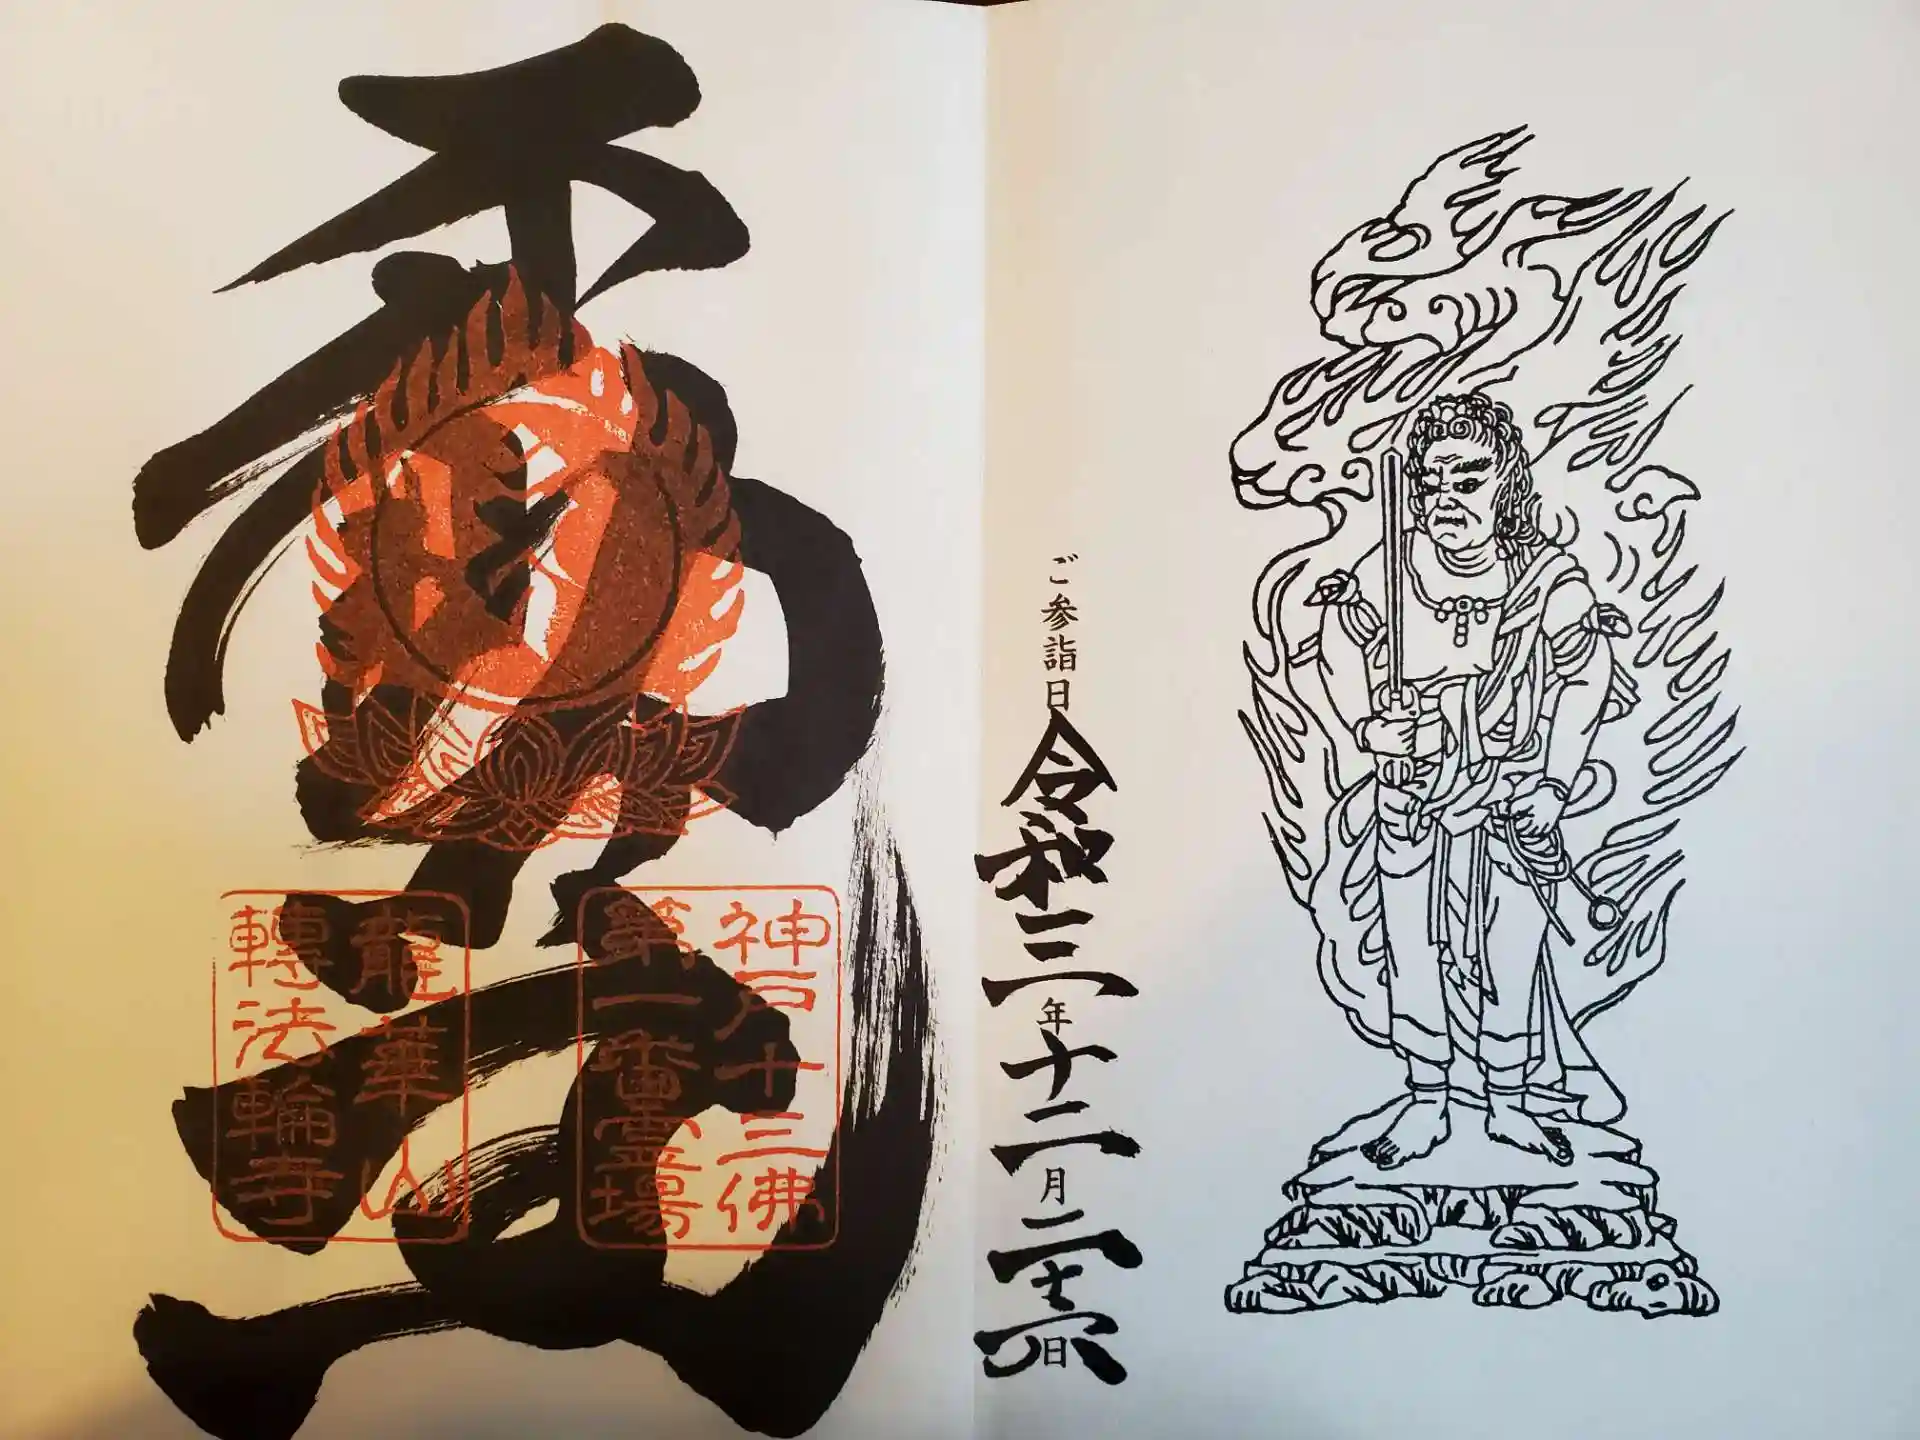 ご参詣日 令和三年十二月二十六日
不動
神戸十三佛
第一番霊場
龍華山
轉法輪寺